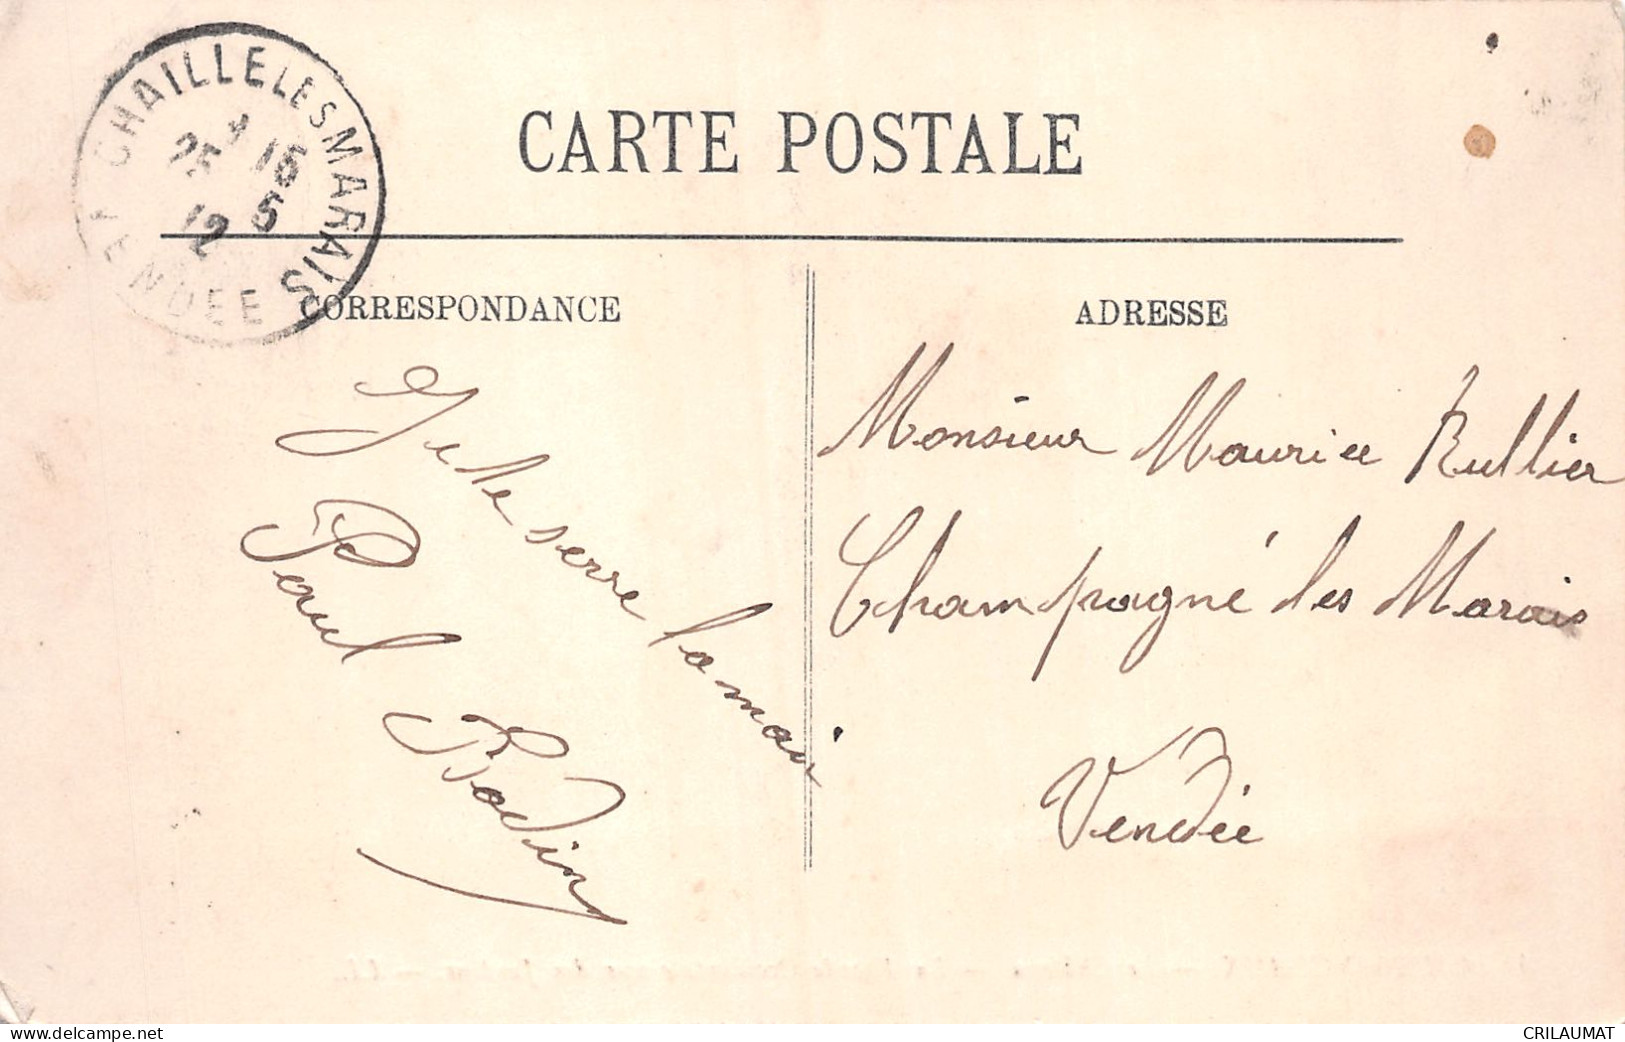 CHAILLE LES MARAIS
25 15
12 5
VENDÉE
CARTE POSTALE
CORRESPONDANCE
ADRESSE
Je te serre la main
Paul Bodin
Monsieur Maurice Rullier
Champagné les Marais
Vendée
www.delcampe.net
CRILAUMAT